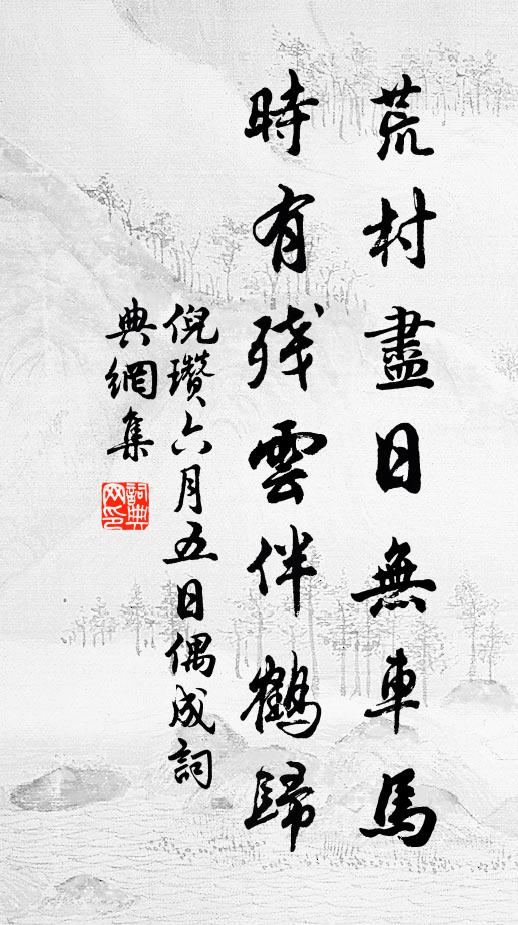 荒村盡日無車馬
時有殘雲伴鶴歸
倪瓚六月五日偶成詞
典網集
詞典
网印